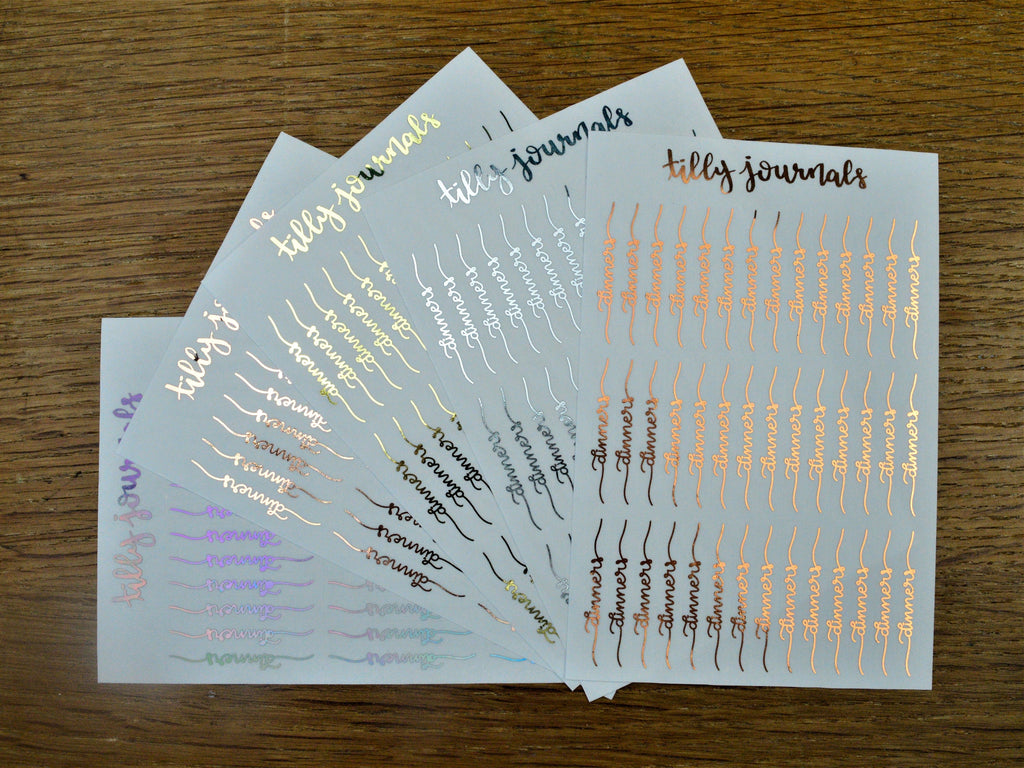 tilly journals
dinners dinners dinners dinners dinners dinners dinners dinners dinners dinners dinners dinners dinners dinners
dinners dinners dinners dinners dinners dinners dinners dinners dinners dinners dinners dinners dinners dinners
dinners dinners dinners dinners dinners dinners dinners dinners dinners dinners dinners dinners dinners dinners
tilly journals
dinners dinners dinners dinners dinners dinners dinners
dinners dinners dinners
tilly journals
dinners dinners dinners dinners dinners
dinners dinners dinners dinners
dinners
tilly
dinners dinners dinners dinners dinners
dinners dinners
tilly
dinners dinners dinners dinners dinners dinners
dinners dinners